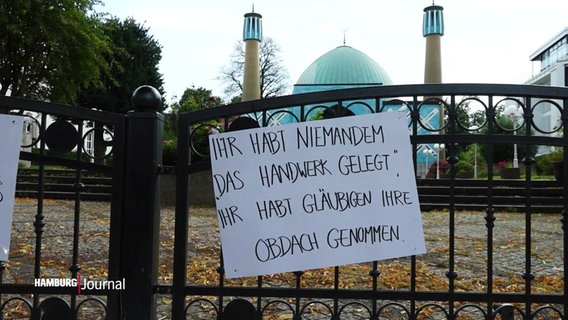 IHR HABT NIEMANDEM
DAS HANDWERK GELEGT",
IHR HABT GLÄUBIGEN IHRE
OBDACH GENOMMEN.
HAMBURG Journal